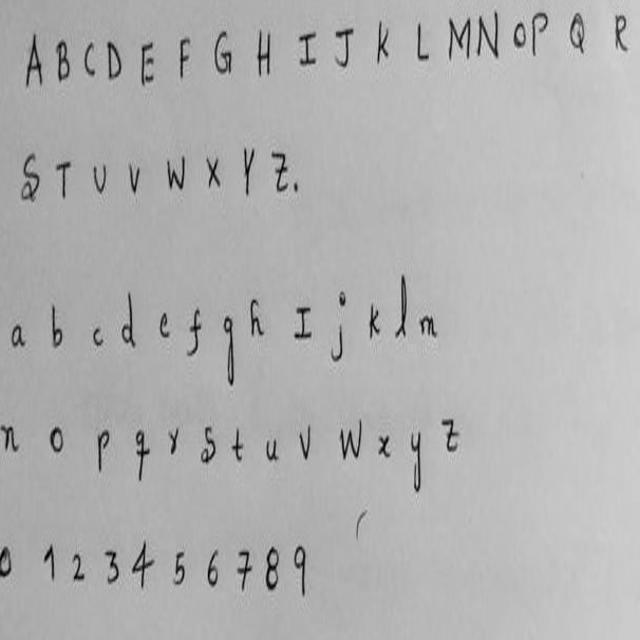 A B C D E F G H I J K L M N O P Q R
S T U V W X Y Z.
a b c d e f g h I j k l m
n o p q r s t u v w x y z
0 1 2 3 4 5 6 7 8 9